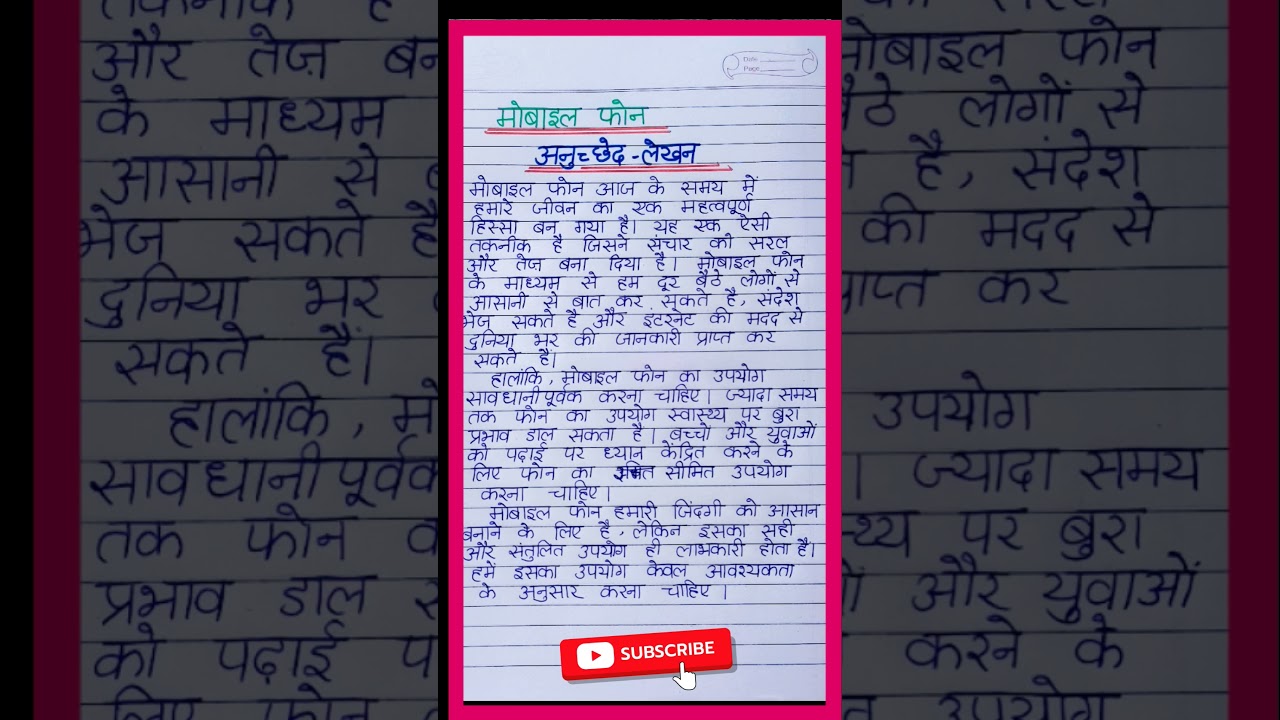 Date
Page
मोबाइल फोन
अनुच्छेद-लेखन
मोबाइल फोन आज के समय में
हमारे जीवन का एक महत्वपूर्ण
हिस्सा बन गया है। यह एक ऐसी
तकनीक है जिसने संचार को सरल
और तेज़ बना दिया है। मोबाइल फोन
के माध्यम से हम दूर बैठे लोगों से
आसानी से बात कर सकते है, संदेश
भेज सकते है और इंटरनेट की मदद से
दुनिया भर की जानकारी प्राप्त कर
सकते हैं।
हालांकि, मोबाइल फोन का उपयोग
सावधानीपूर्वक करना चाहिए। ज्यादा समय
तक फोन का उपयोग स्वास्थ्य पर बुरा
प्रभाव डाल सकता है। बच्चों और युवाओं
को पढ़ाई पर ध्यान केंद्रित करने के
लिए फोन का सीमित उपयोग
करना चाहिए।
मोबाइल फोन हमारी जिंदगी को आसान
बनाने के लिए है, लेकिन इसका सही
और संतुलित उपयोग ही लाभकारी होता है।
हमें इसका उपयोग केवल आवश्यकता
के अनुसार करना चाहिए।
SUBSCRIBE